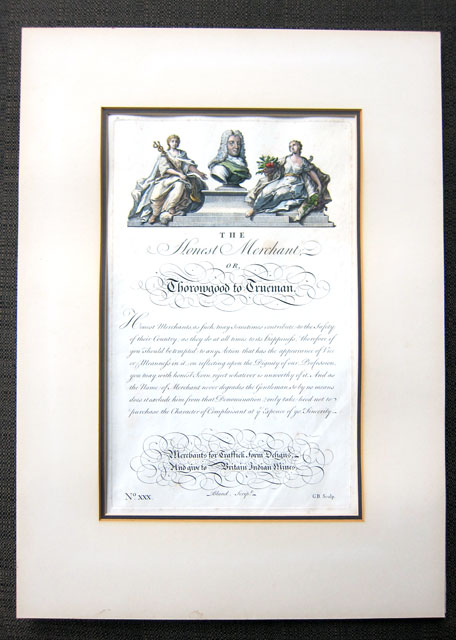 THE
Honest Merchant,
OR,
Thorowgood to Trueman.
Honest Merchants as such, may sometimes contribute to the Safety
of their Country, as they do at all times to its happiness. Therefore if
you should be tempted to any Action that has the appearance of Vice
or Meanness in it, on reflecting upon the Dignity of our Profession,
you may with honest Scorn reject whatever is unworthy of it. And as
the Name of Merchant never degrades the Gentleman, so by no means
does it exclude him from that Denomination: only take heed not to
purchase the Character of Complaisant at ye Expence of yr Sincerity.
Merchants for Traffick form Designs,
And give to Britain Indian Mines.
No. XXX.
Bland Scrip.
G.B. Sculp.